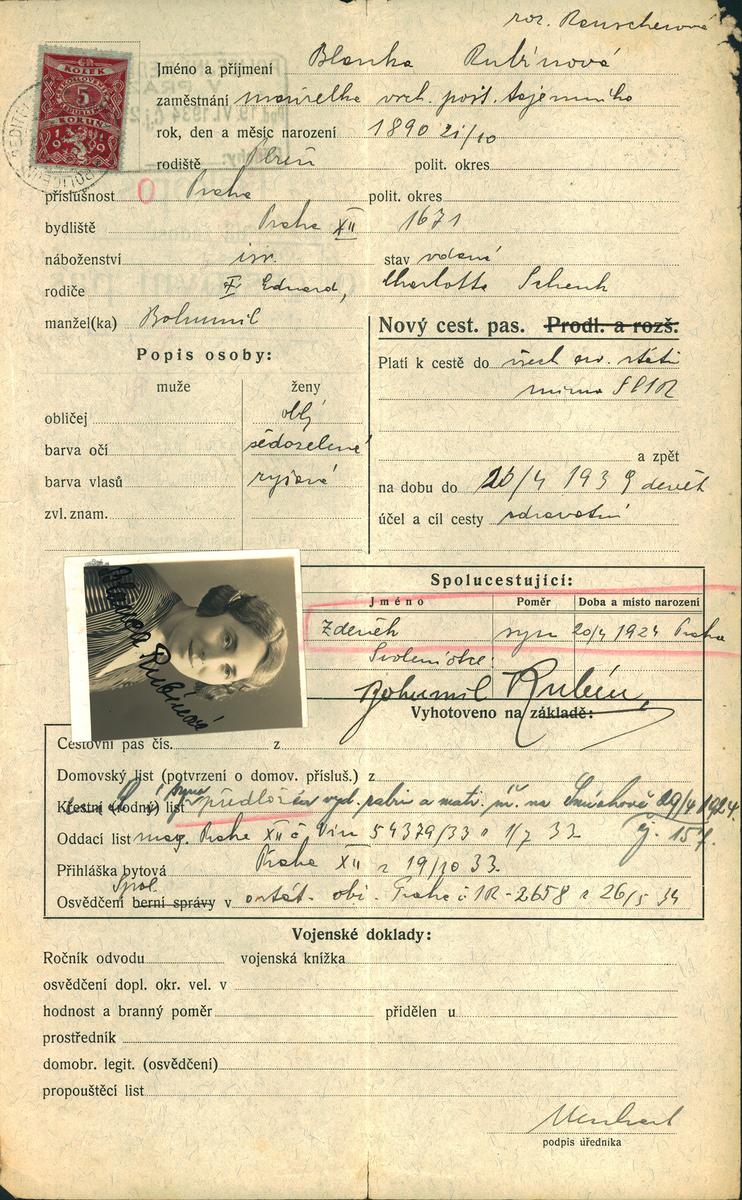 roz. Rauscherová
KOLEK
5
KORUN
Jméno a příjmení Blanka Rubínová
zaměstnání manželka vrch. pošt. tajemníka
rok, den a měsíc narození 1890 21/10
rodiště Plzeň polit. okres
příslušnost 0 Praha polit. okres
bydliště Praha XII 1671
náboženství isr. stav vdaná
rodiče Eduard, Charlotte Schenk
manžel(ka) Bohumil
Nový cest. pas. Prodl. a rozš.
Popis osoby:
Platí k cestě do všech ev. států
mimo SSSR
muže ženy
obličej oblý
barva očí šedozelené
a zpět
barva vlasů ryšavá
na dobu do 20/4 1939
zvl. znam.
účel a cíl cesty zdravotní
Blanka Rubínová
Spolucestující:
Jméno Poměr Doba a místo narození
Zdeněk syn 20/4 1924 Praha
Svolení otce:
Bohumil Rubín
Vyhotoveno na základě:
Cestovní pas čís. z
Domovský list (potvrzení o domov. přísluš.) z
Křestní (rodný) list syna předložen vyd. rabín a matr. na Smíchově 29/4 1924
č. 157
Oddací list mag. Praha XII č. 54379/33 1/7 33
Přihláška bytová Praha XII z 19/10 33
Spol.
Osvědčení berní správy v obč. Praha č. 1R-2658 z 26/5 34
Vojenské doklady:
Ročník odvodu vojenská knížka
osvědčení dopl. okr. vel. v
hodnost a branný poměr přidělen u
prostředník
domobr. legit. (osvědčení)
propouštěcí list
podpis úředníka